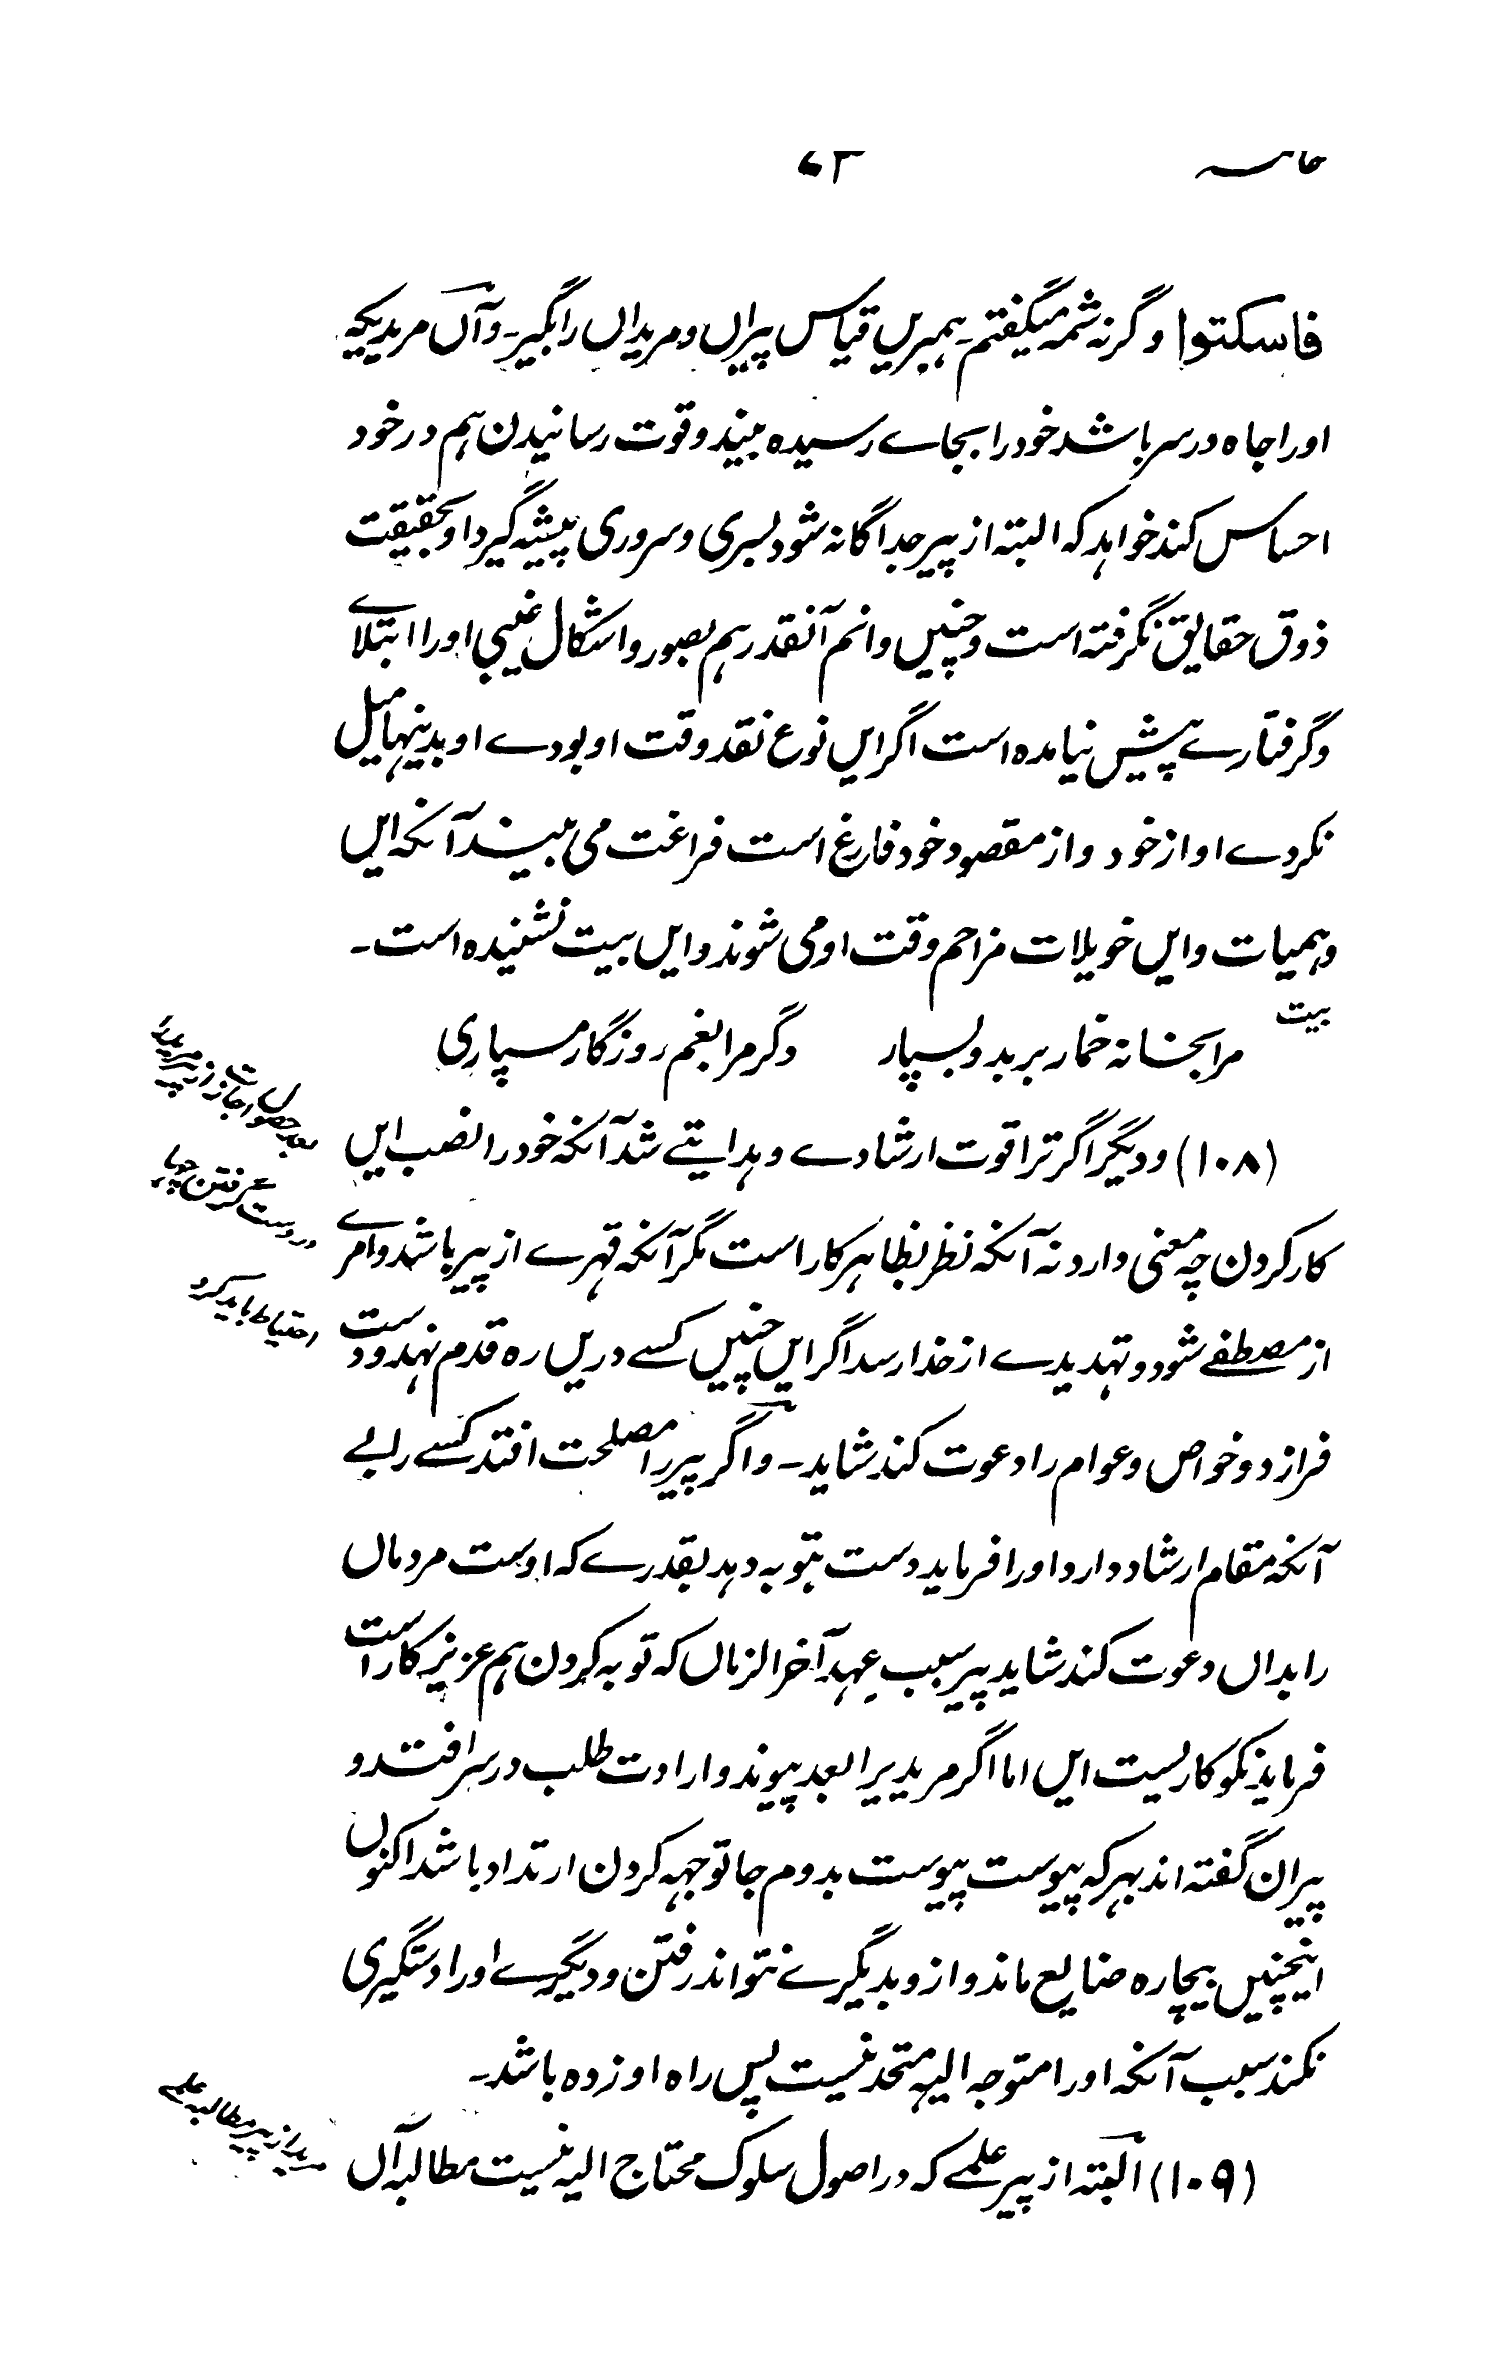 خاتمه ۷۳
فاسکتوا وگرنه شمه میگفتم۔ همبریں قیاس پیراں ومریداں رابگیر۔ وآں مریدیکه
اورا جاه در سر باشد خود را بجاے رسیده بیند وقوت رسانیدن هم در خود
احساس کند خواهد که البته از پیر جداگانه شود بسری وسروری پیشه گیرد او بحقیقت
ذوق حقایق نگرفته است وچنیں دانم آنقدر هم بصور واشکال غیبی اورا ابتلاے
وگرفتارے پیش نیامده است اگر ایں نوع نقد وقت او بودے او بدینها میل
نکردے او از خود واز مقصود خود فارغ است فراغت می بیند آنکه ایں
وهمیات وایں خویلات مزاحم وقت او می شوند وایں بیت نشنیده است۔
بیت
مرا بخانه خمار بر بدو بسپار دگر مرا بغم روزگار مسپاری
(۱۰۸) ودیگر اگر ترا قوت ارشادے وهدایتے شد آنکه خود را نصب ایں
کار کردن چه معنی دارد نه آنکه نظر بظاهر کار است مگر آنکه قهرے از پیر باشد وامرے
از مصطفےٰ شود وتهدیدے از خدا رسد اگر ایں چنیں کسے دریں ره قدم نهد ودست
فرازد وخواص وعوام را دعوت کند شاید۔ واگر پیر را مصلحت افتد کسے رابے
آنکه مقام ارشاد دارد اورا فرماید دست بتوبه دهد بقدرے که اوست مردماں
را بداں دعوت کند شاید پیر سبب عهد آخر الزماں که توبه کردن هم عزیز کار است
فرماید نکو کاریست ایں اما اگر مریدے را بعد پیوند وارادت طلب در سر افتد و
پیران گفته اند بهر که پیوست پیوست بدوم جا توجهه کردن ارتداد باشد اکنوں
اینچنیں بیچاره ضایع ماند واز و بدیگرے نتواند رفتن ودیگرے اورا دستگیری
نکند سبب آنکه اورا متوجه الیه متحد نیست پس راه او زده باشد۔
(۱۰۹) البته از پیر علمے که در اصول سلوک محتاج الیه نیست مطالبه آں
بعد حصول اجازت از پیر مرید را
در دست گرفتن چهار
احتیاط باید کرد
مرید از پیر مطالبه علمے